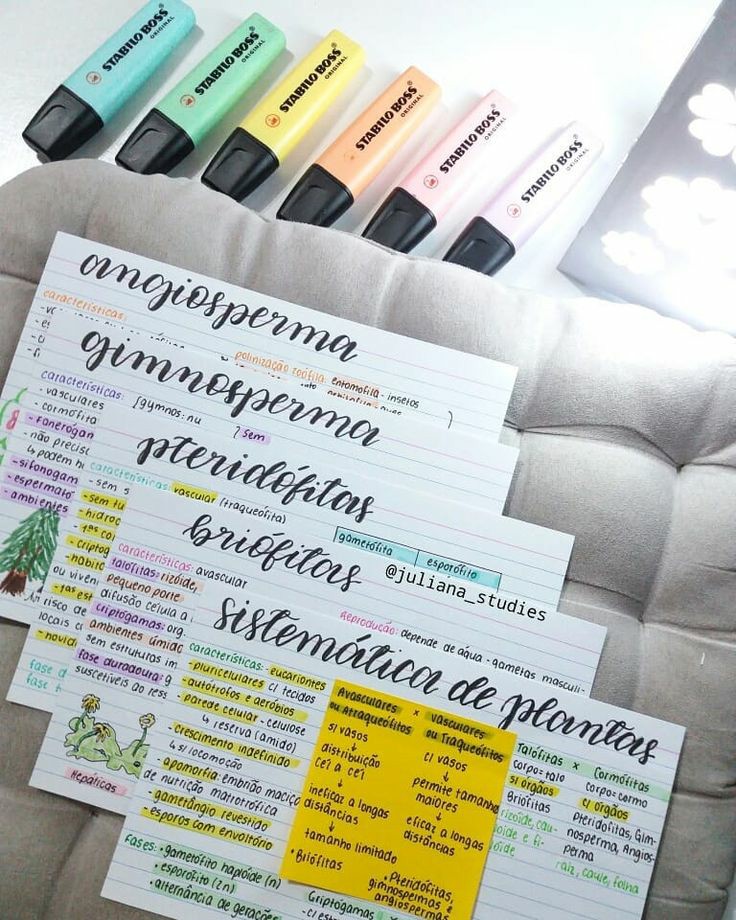 STABILO BOSS
ORIGINAL
STABILO BOSS
ORIGINAL
STABILO BOSS
ORIGINAL
STABILO BOSS
ORIGINAL
STABILO BOSS
ORIGINAL
STABILO BOSS
ORIGINAL
angiosperma
características:
polinização zoófila: entomofila - insetos
gimnosperma
características: [gymnos: nu
- vasculares
- cormófita
} sem
- fanerógam
- não precis
↳ podem h
- sifonogam
- espermato
- ambientes
pteridófitas
características: vascular (traqueófita)
- sem s
- sem tu
- hidroc
- criptog
- habito
ou viven
risco de
locais c
- novid
fase d
fase t
gametófito
esporófito
briófitas
@juliana_studies
características: avascular
talófitas: rizóide,
pequeno porte
difusão célula a
criptógamas: org
ambientes úmido
sem estruturas im
fase duradoura: g
suscetíveis ao ress
Reprodução: depende de água - gametas masculi-
Hepáticas
sistemática de plantas
características: - eucariontes
- pluricelulares c/ tecidos
- autótrofos e aeróbios
- parede celular - celulose
↳ reserva (amido)
- crescimento indefinido
↳ s/ locomoção
- apomorfia: embrião maciço
de nutrição matrotrófica
- gametângio revestido
- esporos com envoltório
Fases: • gametófito haplóide (n)
• esporófito (2n)
• alternância de gerações
Avasculares x vasculares
ou Atraqueófitos ou Traqueófitos
s/ vasos
↓
distribuição
cel a cel
↓
ineficaz a longas
distâncias
↓
tamanho limitado
• Briófitas
c/ vasos
↓
permite tamanhos
maiores
↓
eficaz a longas
distâncias
• Pteridófitas,
gimnospermas e
angiospermas
Talófitas x Cormófitas
corpo=talo corpo=cormo
s/ orgãos c/ orgãos
Briófitas Pteridófitas, Gim-
nosperma, Angios-
perma
rizoide, cau-
loide e fi-
lóide
raiz, caule, folha
Criptógamas